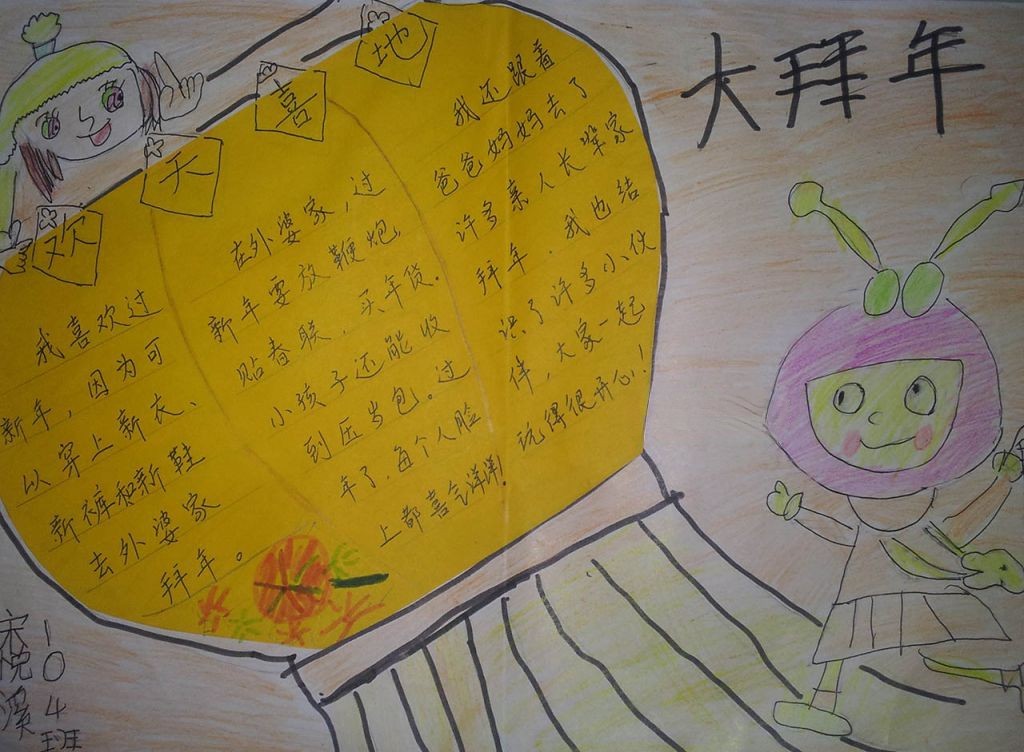 大拜年
欢天喜地
我喜欢过
新年，因为可
以穿上新衣、
新裤和新鞋
去外婆家
拜年。
在外婆家，过
新年要放鞭炮
贴春联，买年货。
小孩子还能收
到压岁包。过
年了，每个人脸
上都喜气洋洋！
我还跟着
爸爸妈妈去了
许多亲人长辈家
拜年．我也结
识了许多小伙
伴，大家一起
玩得很开心！
104班
宋悦溪